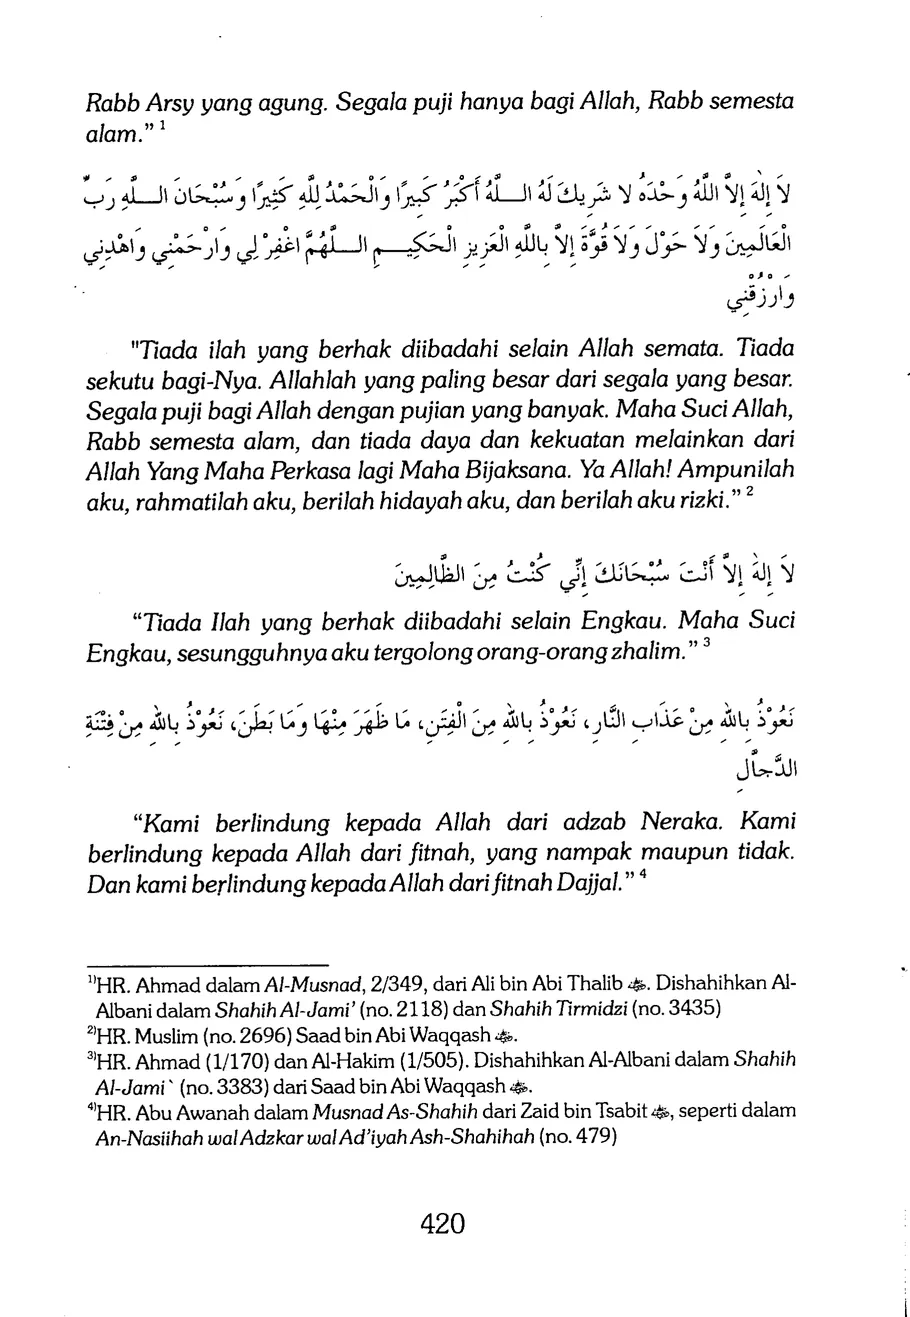 Rabb Arsy yang agung. Segala puji hanya bagi Allah, Rabb semesta
alam.” 1
لَا إِلَهَ إِلاَّ اللَّهُ وَحْدَهُ لَا شَرِيكَ لَهُ اللَّهُ أَكْبَرُ كَبِيرًا وَالْحَمْدُ لِلَّهِ كَثِيرًا وَسُبْحَانَ اللَّهِ رَبِّ
الْعَالَمِينَ وَلَا حَوْلَ وَلَا قُوَّةَ إِلاَّ بِاللَّهِ الْعَزِيزِ الْحَكِيمِ اللَّهُمَّ اغْفِرْ لِي وَارْحَمْنِي وَاهْدِنِي
وَارْزُقْنِي
"Tiada ilah yang berhak diibadahi selain Allah semata. Tiada
sekutu bagi-Nya. Allahlah yang paling besar dari segala yang besar.
Segala puji bagi Allah dengan pujian yang banyak. Maha Suci Allah,
Rabb semesta alam, dan tiada daya dan kekuatan melainkan dari
Allah Yang Maha Perkasa lagi Maha Bijaksana. Ya Allah! Ampunilah
aku, rahmatilah aku, berilah hidayah aku, dan berilah aku rizki.” 2
لَا إِلَهَ إِلاَّ أَنْتَ سُبْحَانَكَ إِنِّي كُنْتُ مِنَ الظَّالِمِينَ
“Tiada Ilah yang berhak diibadahi selain Engkau. Maha Suci
Engkau, sesungguhnya aku tergolong orang-orang zhalim.” 3
نَعُوْذُ بِاللهِ مِنْ عَذَابِ النَّارِ، نَعُوْذُ بِاللهِ مِنَ الْفِتَنِ، مَا ظَهَرَ مِنْهَا وَمَا بَطَنَ، نَعُوْذُ بِاللهِ مِنْ فِتْنَةِ
الدَّجَّالِ
“Kami berlindung kepada Allah dari adzab Neraka. Kami
berlindung kepada Allah dari fitnah, yang nampak maupun tidak.
Dan kami berlindung kepada Allah dari fitnah Dajjal.” 4
1)HR. Ahmad dalam Al-Musnad, 2/349, dari Ali bin Abi Thalib ﷁ. Dishahihkan Al-
Albani dalam Shahih Al-Jami’ (no. 2118) dan Shahih Tirmidzi (no. 3435)
2)HR. Muslim (no. 2696) Saad bin Abi Waqqash ﷁ.
3)HR. Ahmad (1/170) dan Al-Hakim (1/505). Dishahihkan Al-Albani dalam Shahih
Al-Jami` (no. 3383) dari Saad bin Abi Waqqash ﷁ.
4)HR. Abu Awanah dalam Musnad As-Shahih dari Zaid bin Tsabit ﷁ, seperti dalam
An-Nasiihah wal Adzkar wal Ad’iyah Ash-Shahihah (no. 479)
420